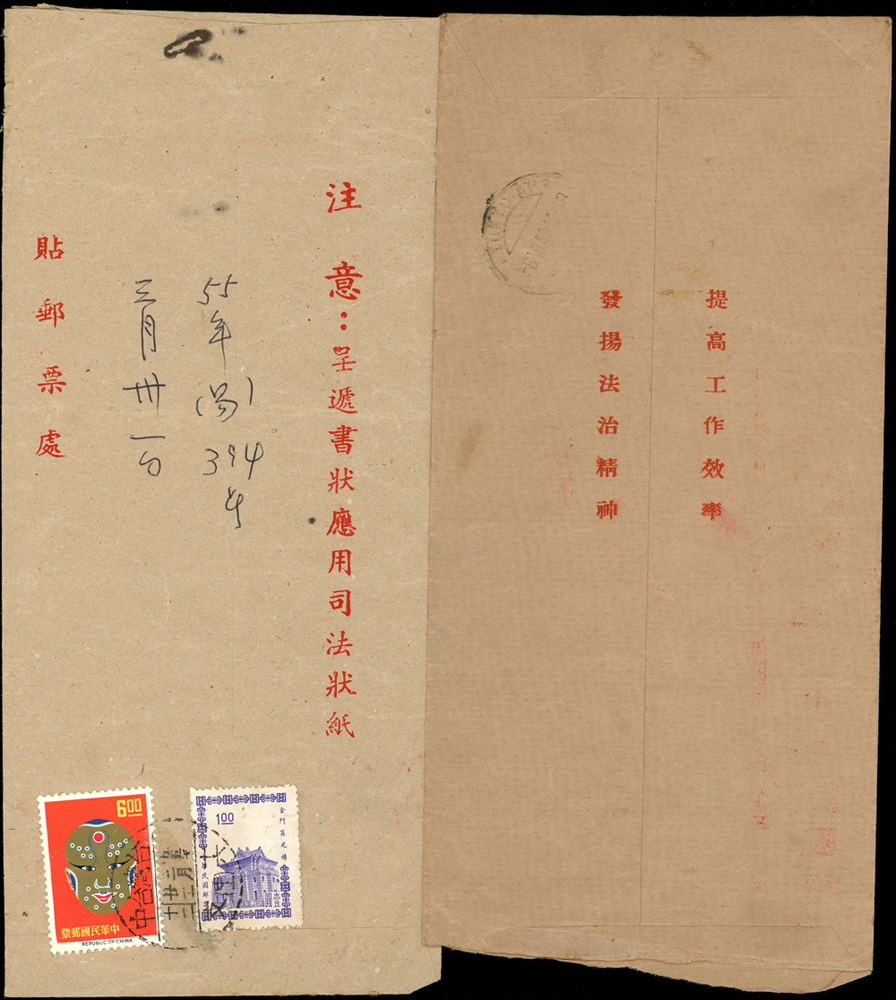 提高工作效率
發揚法治精神
注意：呈遞書狀應用司法狀紙
55年
394
三月卅一日
貼郵票處
6.00
中華民國郵票
REPUBLIC OF CHINA
1.00
金門莒光樓
中華民國郵票
台灣台中